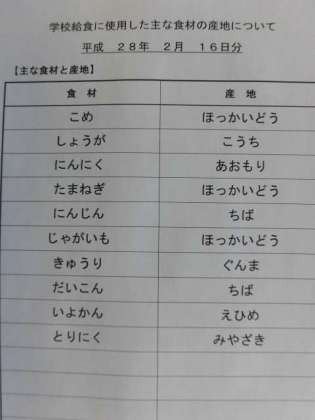 学校給食に使用した主な食材の産地について
平成 28年 2月 16日分
【主な食材と産地】
食 材 産 地
こめ ほっかいどう
しょうが こうち
にんにく あおもり
たまねぎ ほっかいどう
にんじん ちば
じゃがいも ほっかいどう
きゅうり ぐんま
だいこん ちば
いよかん えひめ
とりにく みやざき